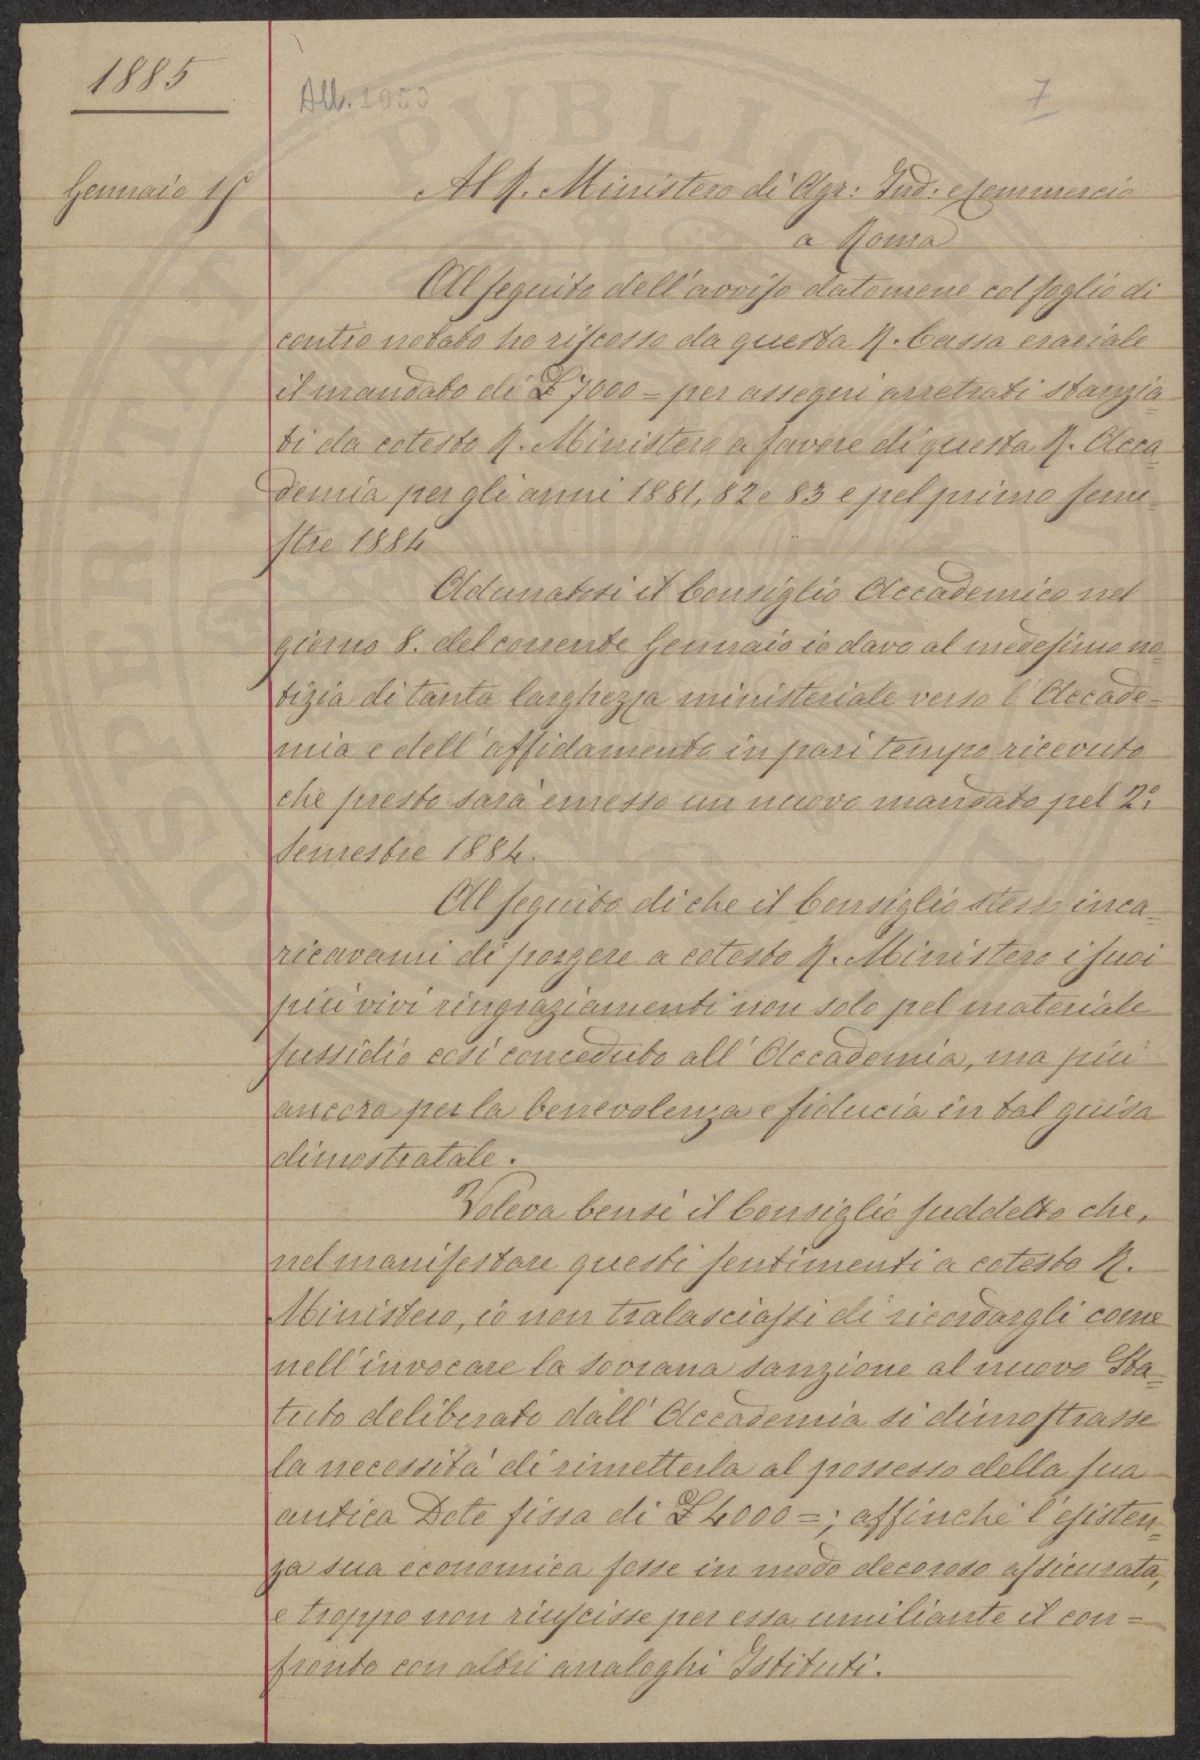 1885
All. 1053
7
Gennaio 15
Al R. Ministero di Agr: Ind: e Commercio
a Roma
Al seguito dell'avviso datomene col foglio di
contro notato ho riscosso da questa R. Cassa erariale
il mandato di £ 7000 = per assegni arretrati stanzia=
ti da cotesto R. Ministero a favore di questa R. Acca=
demia per gli anni 1881, 82 e 83 e pel primo seme=
stre 1884
Adunatosi il Consiglio Accademico nel
giorno 8. del corrente Gennaio io davo al medesimo no=
tizia di tanta larghezza ministeriale verso l'Accade=
mia e dell'affidamento in pari tempo ricevuto
che presto sarà emesso un nuovo mandato pel 2.°
semestre 1884.
Al seguito di che il Consiglio stesso inca=
ricavami di porgere a cotesto R. Ministero i suoi
più vivi ringraziamenti non solo pel materiale
sussidio così conceduto all'Accademia, ma più
ancora per la benevolenza e fiducia in tal guisa
dimostratale.
Voleva bensì il Consiglio suddetto che,
nel manifestare questi sentimenti a cotesto R.
Ministero, io non tralasciassi di ricordargli come
nell'invocare la sovrana sanzione al nuovo Sta=
tuto deliberato dall'Accademia si dimostrasse
la necessità di rimetterla al possesso della sua
antica Dote fissa di £ 4000 =; affinchè l'esisten=
za sua economica fosse in modo decoroso assicurata,
e troppo non riuscisse per essa umiliante il con=
fronto con altri analoghi Istituti.